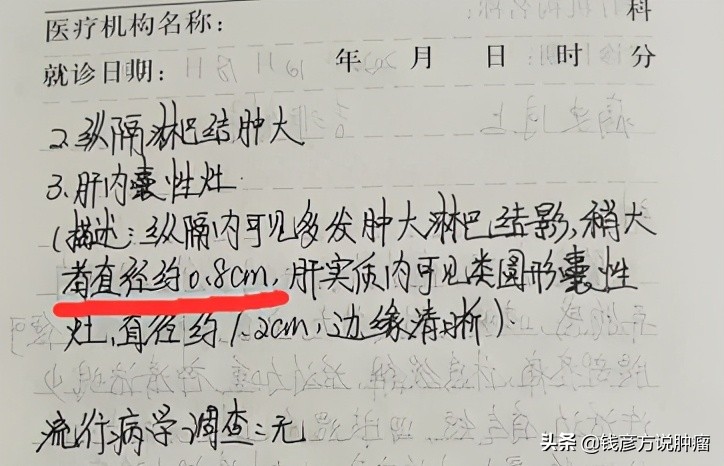 医疗机构名称: 科
就诊日期: 年 月 日 时 分
2.纵隔淋巴结肿大
3.肝内囊性灶
(描述:纵隔内可见多发肿大淋巴结影,稍大
者直径约0.8cm,肝实质内可见类圆形囊性
灶,直径约1.2cm,边缘清晰).
流行病学调查:无
头条 @钱彦方说肿瘤